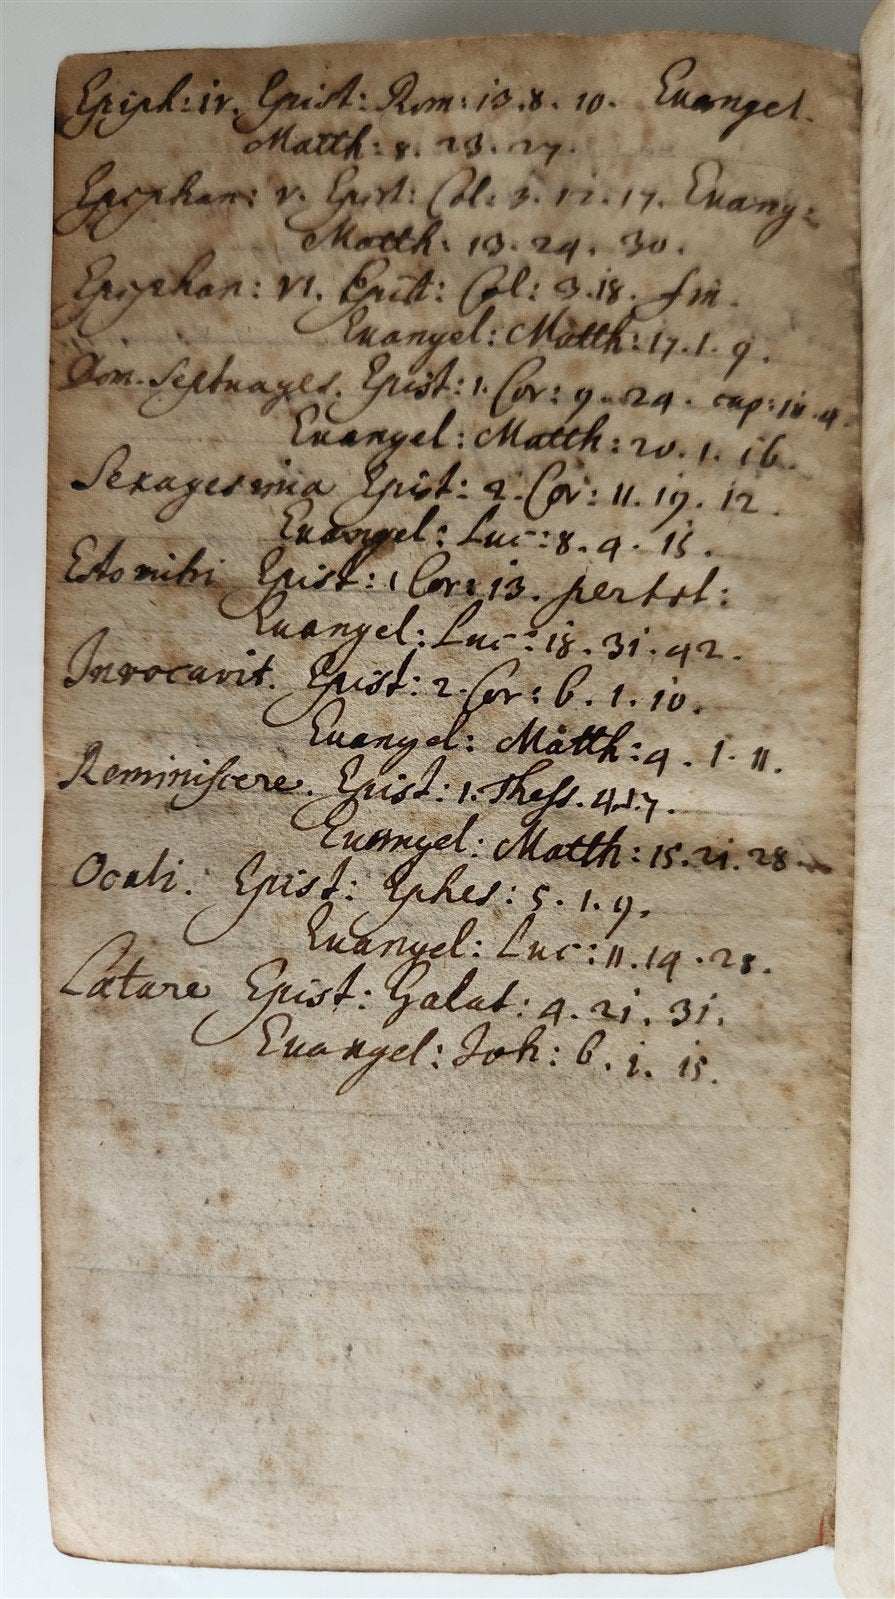 Epiph: iv. Epist: Rom: 13. 8. 10. Euangel.
Matth: 8. 23. 27.
Epiphan: v. Epist: Col: 3. 12. 17. Euang:
Matth: 13. 24. 30.
Epiphan: VI. Epist: Col: 3. 18. fin.
Euangel: Matth: 17. 1. 9.
Dom. Septuages. Epist: 1. Cor: 9. 24. cap: 10. 4
Euangel: Matth: 20. 1. 16.
Sexagesima Epist: 2. Cor: 11. 19. 12.
Euangel: Luc: 8. 4. 15.
Estomihi Epist: 1 Cor: 13. per tot:
Euangel: Luc: 18. 31. 42.
Invocavit. Epist: 2. Cor: 6. 1. 10.
Euangel: Matth: 4. 1. 11.
Reminiscere. Epist: 1. Thess. 4. 1. 7.
Euangel: Matth: 15. 21. 28.
Oculi. Epist: Ephes: 5. 1. 9.
Euangel: Luc: 11. 14. 28.
Lætare Epist: Galat: 4. 21. 31.
Euangel: Joh: 6. 1. 15.